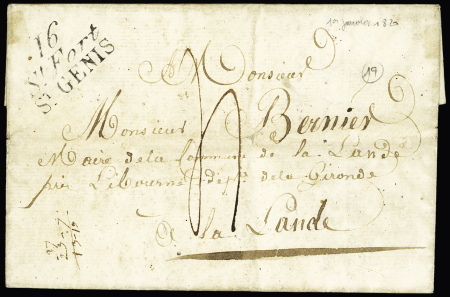 1er janvier 1820
16
St Fort
St GENIS
19
Monsieur
Monsieur Bernier
Maire de la Commune de la Lande
près Libourne dépt de la Gironde
A la Lande